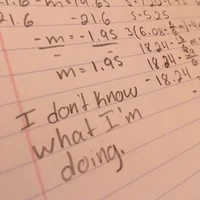 -m = 19.65
21.6 -21.6 s-5.25
-m = -1.95 3(6.08
m = 1.95 18.24
18.24
-18.24
I don't know
what I'm
doing.